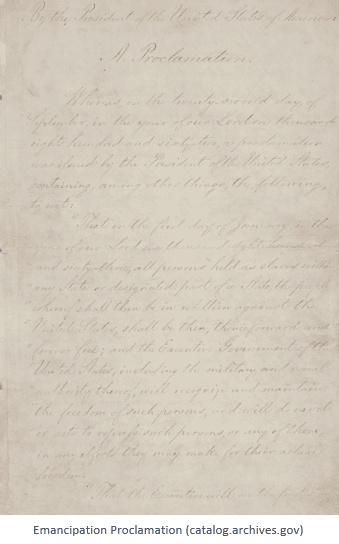 By the President of the United States of America:
A Proclamation.
Whereas, on the twenty-second day of
September, in the year of our Lord one thousand
eight hundred and sixty-two, a proclamation
was issued by the President of the United States,
containing, among other things, the following,
to wit:
"That on the first day of January, in the
year of our Lord one thousand eight hundred
and sixty-three, all persons held as slaves within
any State or designated part of a State, the people
whereof shall then be in rebellion against the
United States, shall be then, thenceforward, and
forever free; and the Executive Government of the
United States, including the military and naval
authority thereof, will recognize and maintain
the freedom of such persons, and will do no act
or acts to repress such persons, or any of them,
in any efforts they may make for their actual
freedom.
"That the Executive will, on the first
Emancipation Proclamation (catalog.archives.gov)